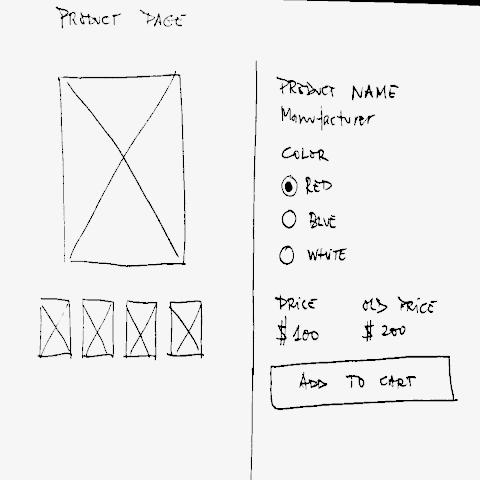 PRODUCT PAGE
PRODUCT NAME
Manufacturer
COLOR
RED
BLUE
WHITE
PRICE OLD PRICE
$ 100 $ 200
ADD TO CART